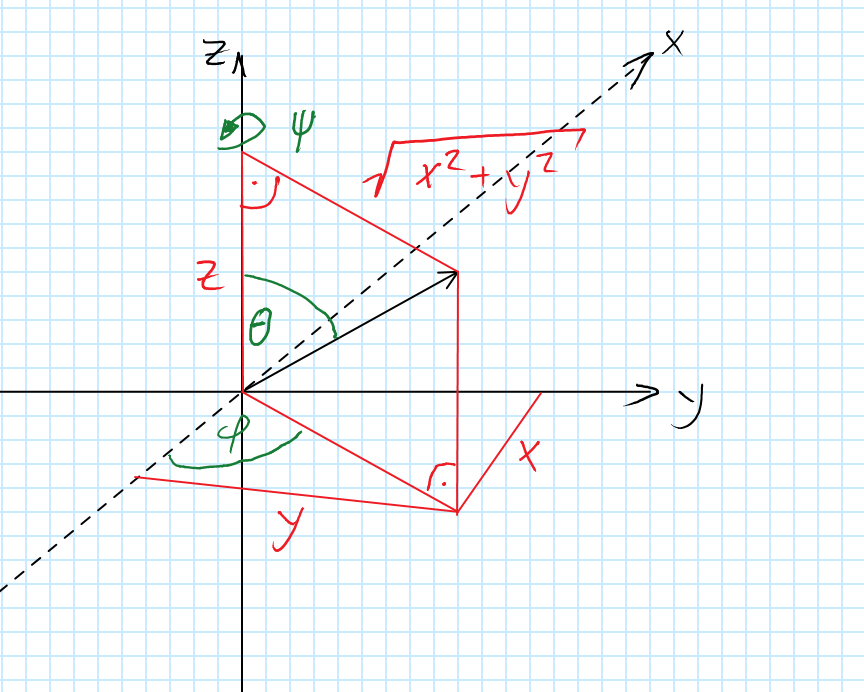 z
x
ψ
√x²+y²
z
θ
y
φ
x
y